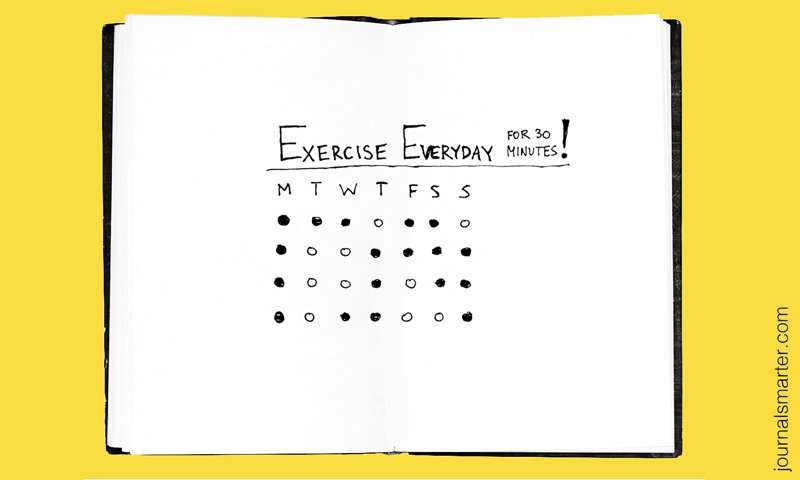 EXERCISE EVERYDAY FOR 30 MINUTES!
M T W T F S S
journalsmarter.com